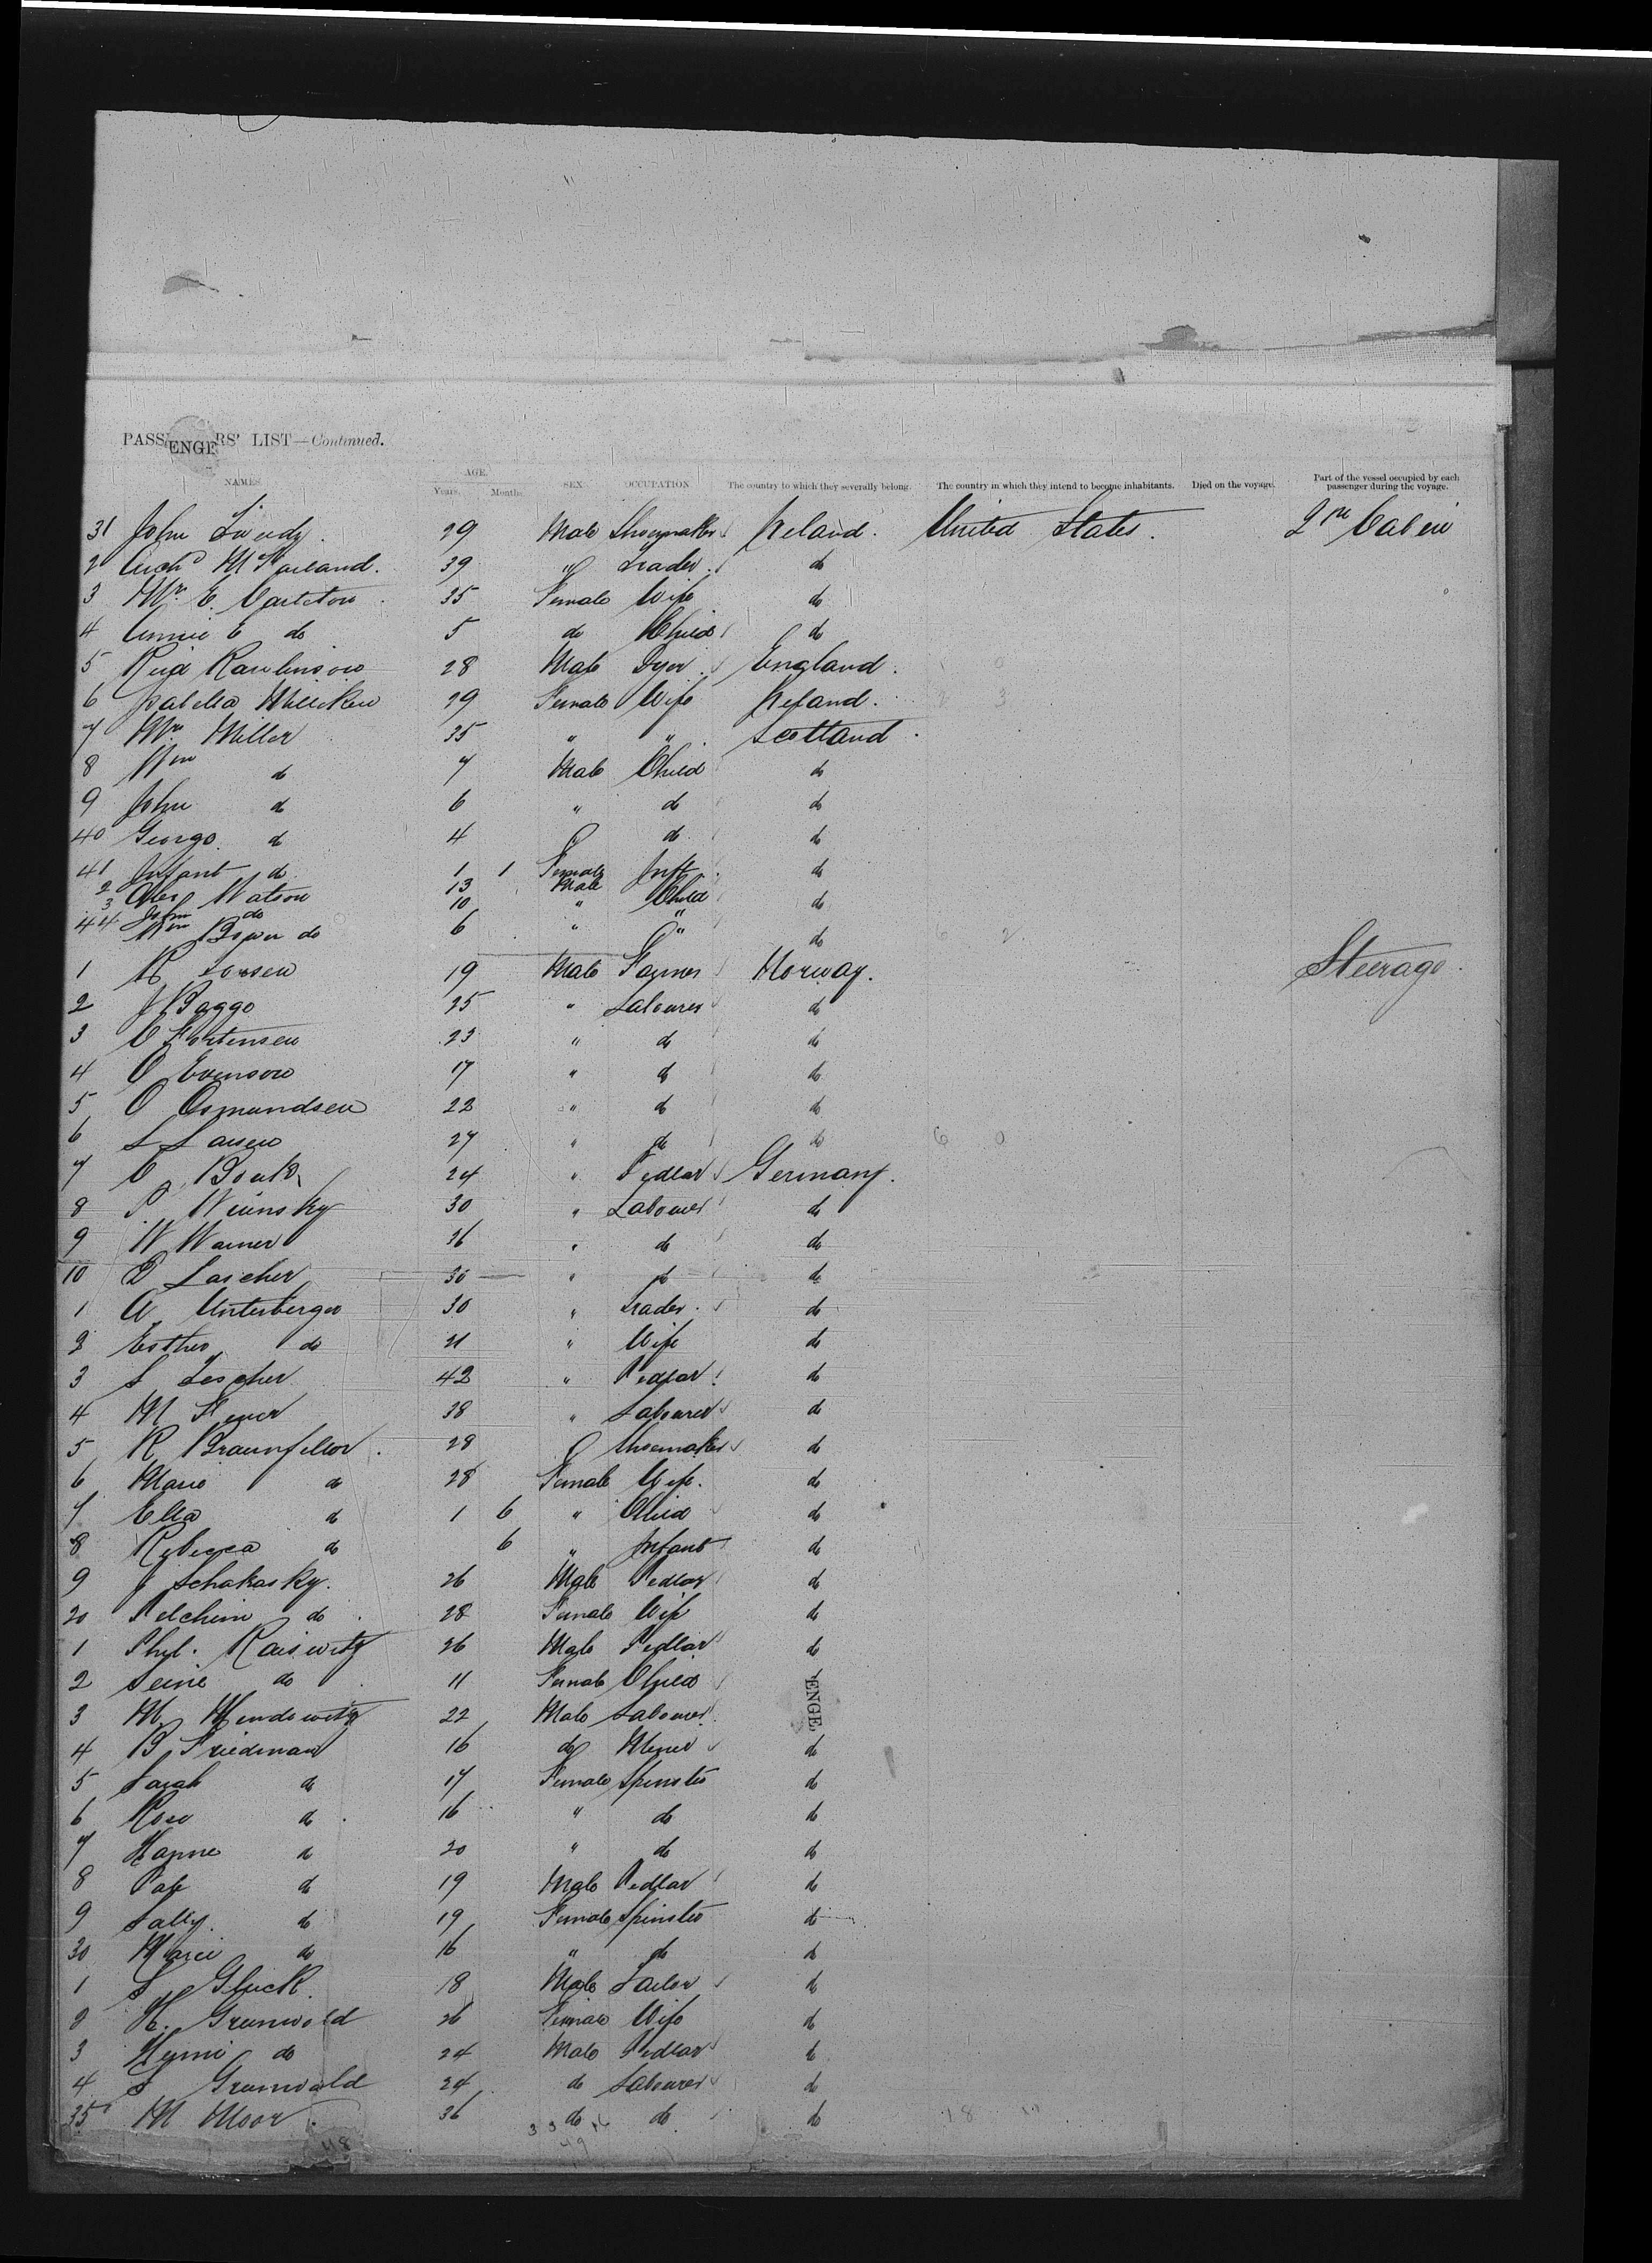 PASSENGERS' LIST—Continued.
NAMES. AGE. Years. Months. SEX. OCCUPATION The country to which they severally belong. The country in which they intend to become inhabitants. Died on the voyage. Part of the vessel occupied by each passenger during the voyage.
31 John 29 Male Shoemaker Ireland. United States. 2nd Cabin
2 Archd McFarland. 39 " Trader. do
3 Mrs E. Carleton 35 Female Wife do
4 Annie E do 5 do Child do
5 Rawlinson 28 Male Dyer England.
6 Isabella Milliken 29 Female Wife Ireland.
7 Mrs Miller 35 " " Scotland.
8 Wm do 7 Male Child do
9 John do 6 " do do
40 George do 4 " do do
41 Infant do 1 1 Female Inft. do
2 Alex Watson 13 Male Child do
3 John do 10 " "
44 Wm Brown do 6 " " do
1 Larsen 19 Male Farmer Norway. Steerage.
2 J Bagge 25 " Labourer do
3 C Mortensen 23 " do do
4 O Evenson 17 " do do
5 O Osmundsen 22 " do do
6 L Larsen 27 " do do
7 24 " Pedlar Germany.
8 30 " Labourer do
9 W Warner 36 " do do
10 D Lascher 30 " do do
1 A Unterberger 30 " Trader. do
2 Esther do 21 " Wife do
3 S 42 " Pedlar do
4 M 38 " Labourer do
5 R Braunfeller. 28 " Shoemaker do
6 Marie do 28 Female Wife. do
7 Ella do 1 6 " Child do
8 Rebecca do 6 " Infant do
9 J Schakasky. 26 Male Pedlar do
20 do 28 Female Wife do
1 Phil. Raiswitz 26 Male Pedlar do
2 Seine do 11 Female Child
ENGE
3 M Mendewitz 22 Male Labourer
4 B Friedman 16 do Miner do
5 Sarah do 17 Female Spinster do
6 Rosa do 16 " do do
7 Hanne do 20 " do do
8 do 19 Male Pedlar do
9 Sally. do 19 Female Spinster do
30 Marie do 16 " do do
1 S Gluck. 18 Male Tailor do
2 H. Grunwold 26 Female Wife do
3 do 24 Male Pedlar do
4 S Grunwald 24 do Labourer do
35 M Moor. 36 do do do